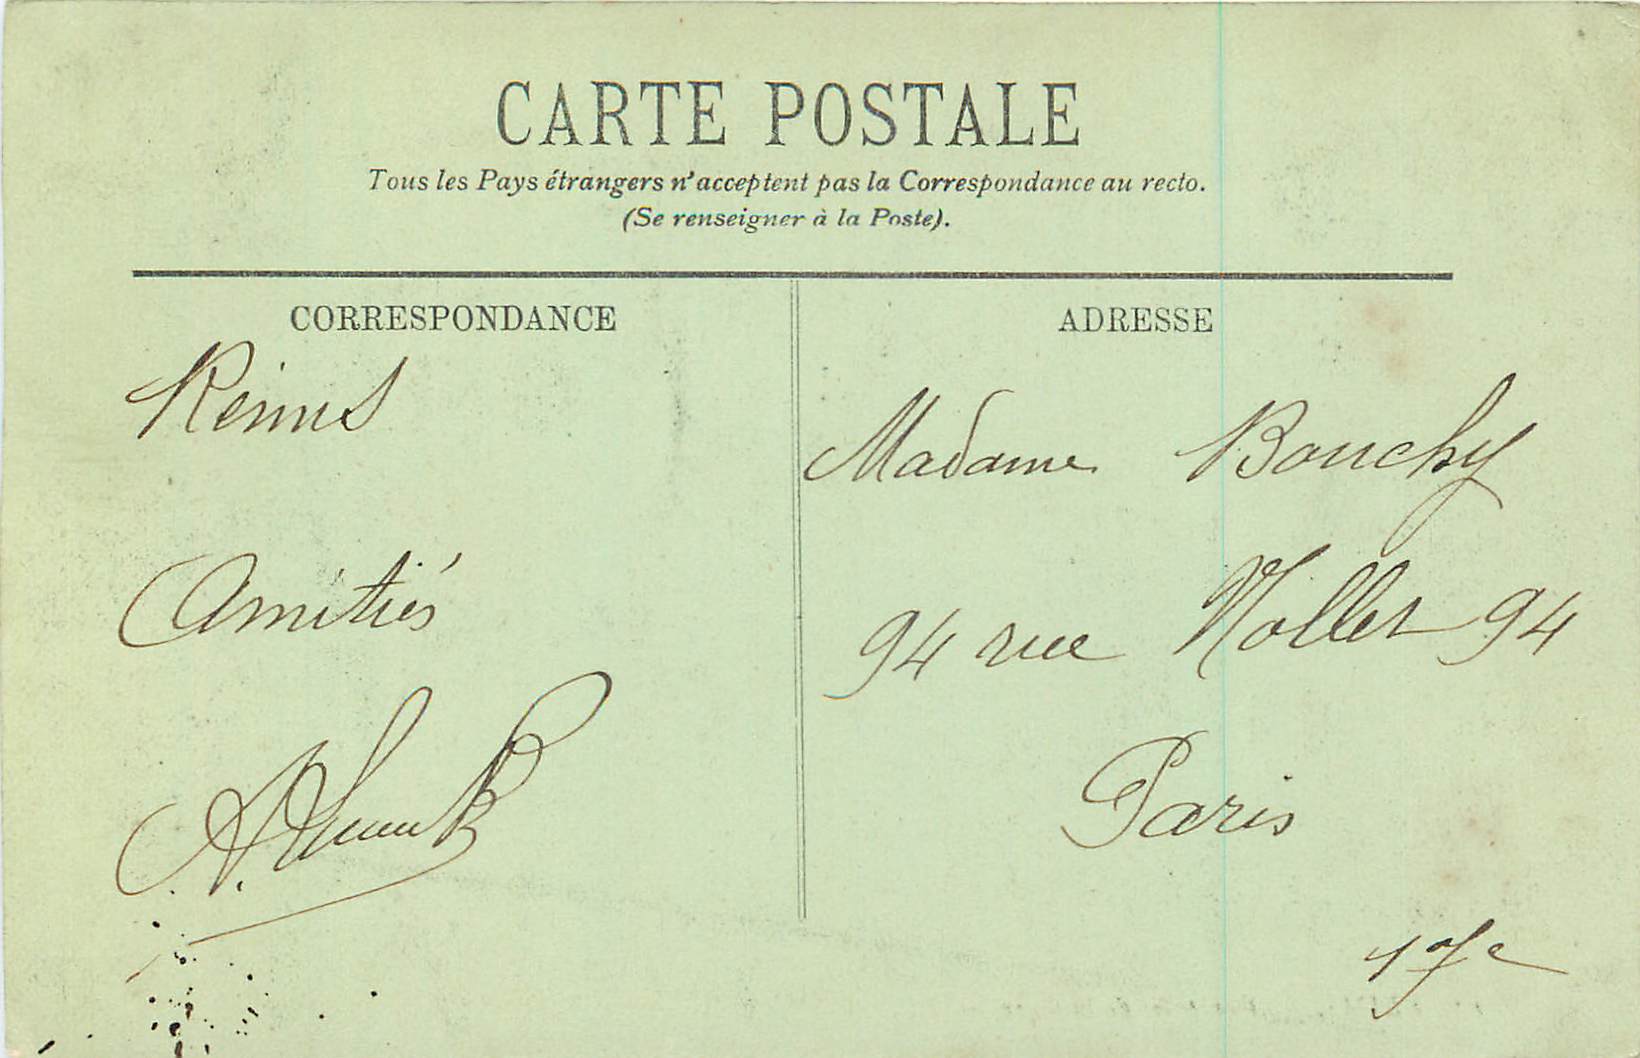 CARTE POSTALE
Tous les Pays étrangers n'acceptent pas la Correspondance au recto.
(Se renseigner à la Poste).
CORRESPONDANCE
Reims
Amitiés
ADRESSE
Madame Bouchy
94 rue Nollet 94
Paris
17e